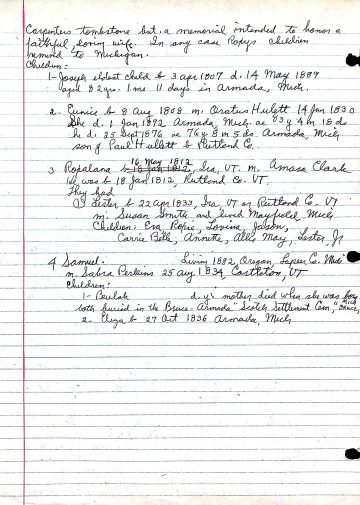 Carpenters tombstone but a memorial intended to honor a
faithful, loving wife. In any case Ropys children
removed to Michigan.
Children:
1- Joseph eldest child b 3 apr 1807 d. 14 May 1889
aged 82 yrs. 1 mo 11 days in Armada, Mich.
2. Eunice b 8 Aug 1808 m. Oratus Hulett 14 Jan 1830
She d. 1 Jan 1892 Armada, Mich. ae 83 y 4 m 18 d
he d. 25 Sept 1876 ae 76 y 8 m 5 ds. Armada, Mich
son of Paul Hulett b Rutland Co.
16 May 1812
3 Ropalana b 18 Jan 1812, Ira, VT. m. Amasa Clark
he was b 18 Jan 1812, Rutland Co. VT.
They had
a) Lester b 22 apr 1833, Ira, VT or Rutland Co - VT
m. Susan Smith and lived Mayfield, Mich
Children: Eva Ropie, Lovina, Judson,
Carrie Beth, Annette, Alle May, Lester Jr
4 Samuel. Living 1882, Oregon, Lapeer Co. Mich
m. Sabra Perkins 25 aug 1834, Castleton, VT
Children:
1- Beulah d. y. mother died when she was born
both buried in the Bruce-Armada "Scotch Settlement Cem," Bruce, Mich
2- Eliza b 27 Oct 1836 Armada, Mich